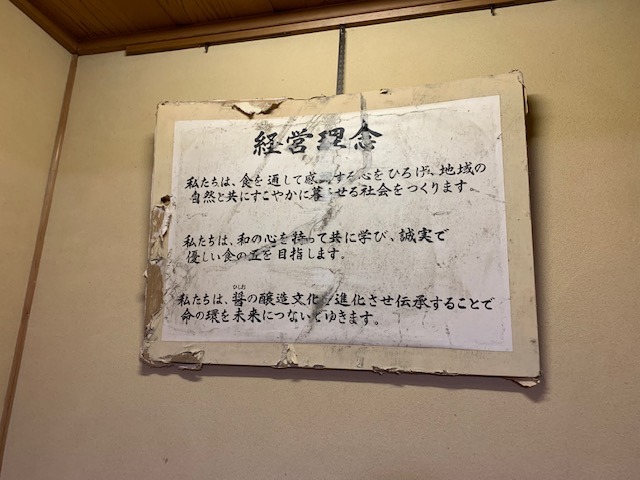 経営理念
私たちは、食を通して感する心をひろげ、地域の
自然と共にすこやかに暮せる社会をつくります。
私たちは、和の心を持って共に学び、誠実で
優しい食の匠を目指します。
私たちは、醤の醸造文化進化させ伝承することで
ひしお
命の環を未来につないでゆきます。